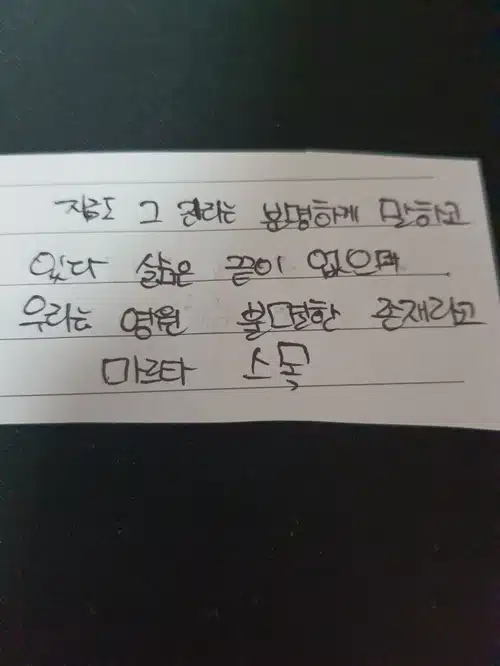 지금도 그 진리는 분명하게 말하고
있다 삶은 끝이 없으며
우리는 영원 불멸한 존재라고
마르타 스목